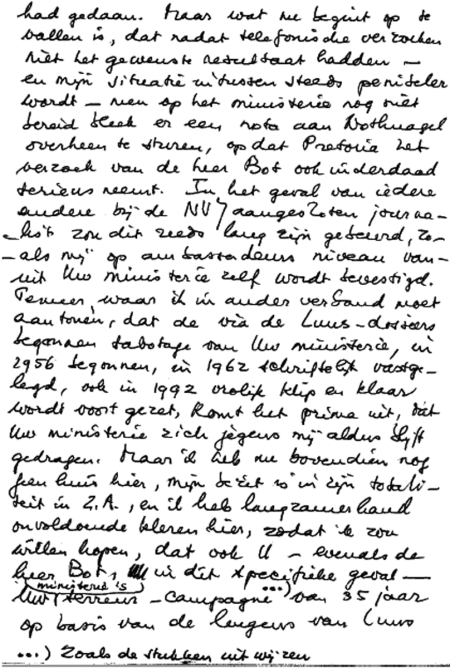 had gedaan. Maar wat me begint op te
vallen is, dat nadat telefonische verzoeken
niet het gewenste resultaat hadden –
en mijn situatie intussen steeds penibeler
wordt – men op het ministerie nog niet
bereid bleek er een nota aan Nothnagel
overheen te sturen, opdat Pretoria het
verzoek van de heer Bot ook inderdaad
serieus neemt. In het geval van iedere
andere bij de NVJ aangesloten journa-
list zou dit reeds lang zijn gebeurd, zo-
als mij op ambassadeurs niveau van-
uit Uw ministerie zelf wordt bevestigd.
Temeer, waar ik in ander verband moet
aantonen, dat de via de Luns-dossiers
begonnen sabotage van Uw ministerie, in
1956 begonnen, in 1962 schriftelijk vastge-
legd, ook in 1992 vrolijk klip en klaar
wordt voortgezet, komt het prima uit, dat
Uw ministerie zich jegens mij aldus blijft
gedragen. Maar ik heb nu bovendien nog
geen huis hier, mijn bezit is in zijn totali-
teit in Z.A., en ik heb langzamerhand
onvoldoende kleren hier, zodat ik zou
willen hopen, dat ook U – evenals de
heer Bot, in dit specifieke geval –
ministerie's
Uw terreur-campagne ...) van 35 jaar
op basis van de leugens van Luns
...) Zoals de stukken uitwijzen